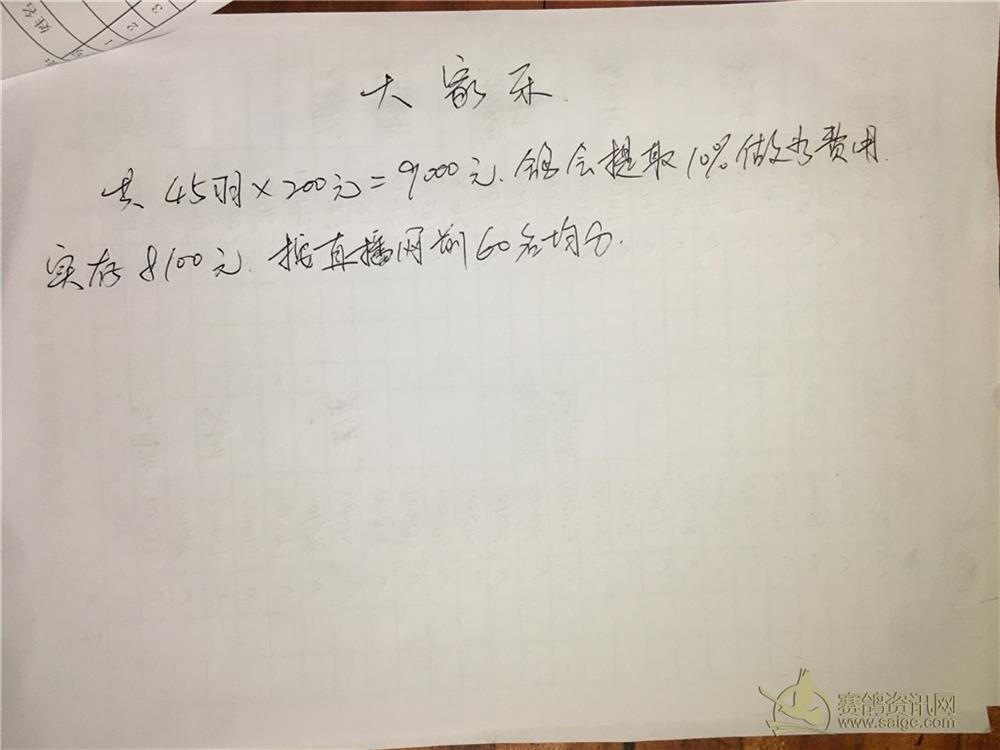 姓名
1
2
3
大家乐
共 45羽×200元=9000元. 鸽会提取10%做为费用.
实存 8100元. 按直播网前60名均分.
赛鸽资讯网
www.saigc.com